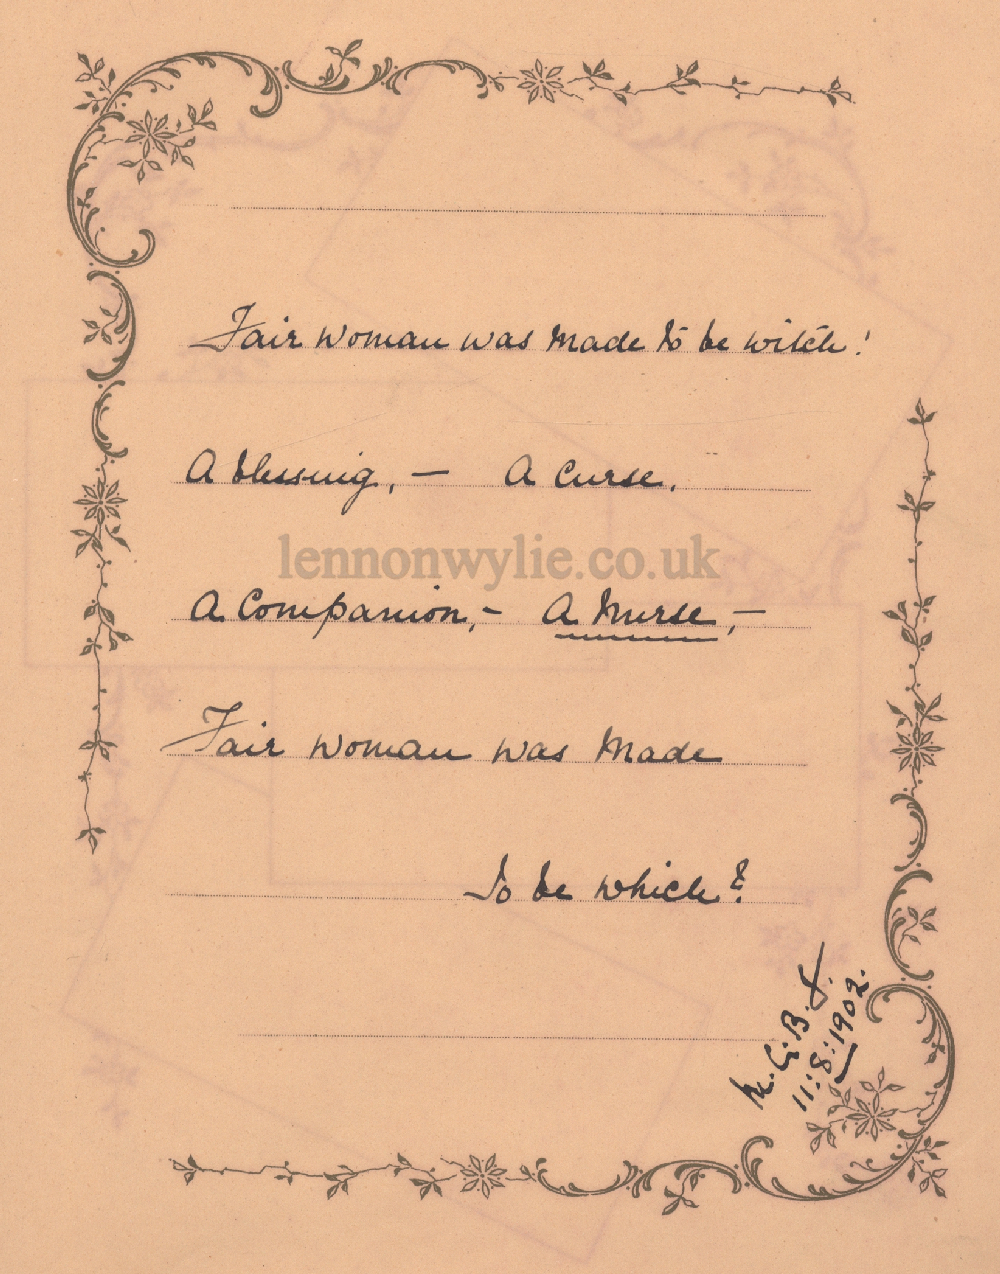 Fair woman was made to be witch!
A blessing, — A curse.
lennonwylie.co.uk
A Companion, - A Nurse, —
Fair woman was made
to be which?
M. G. B. J.
11:8:1902.